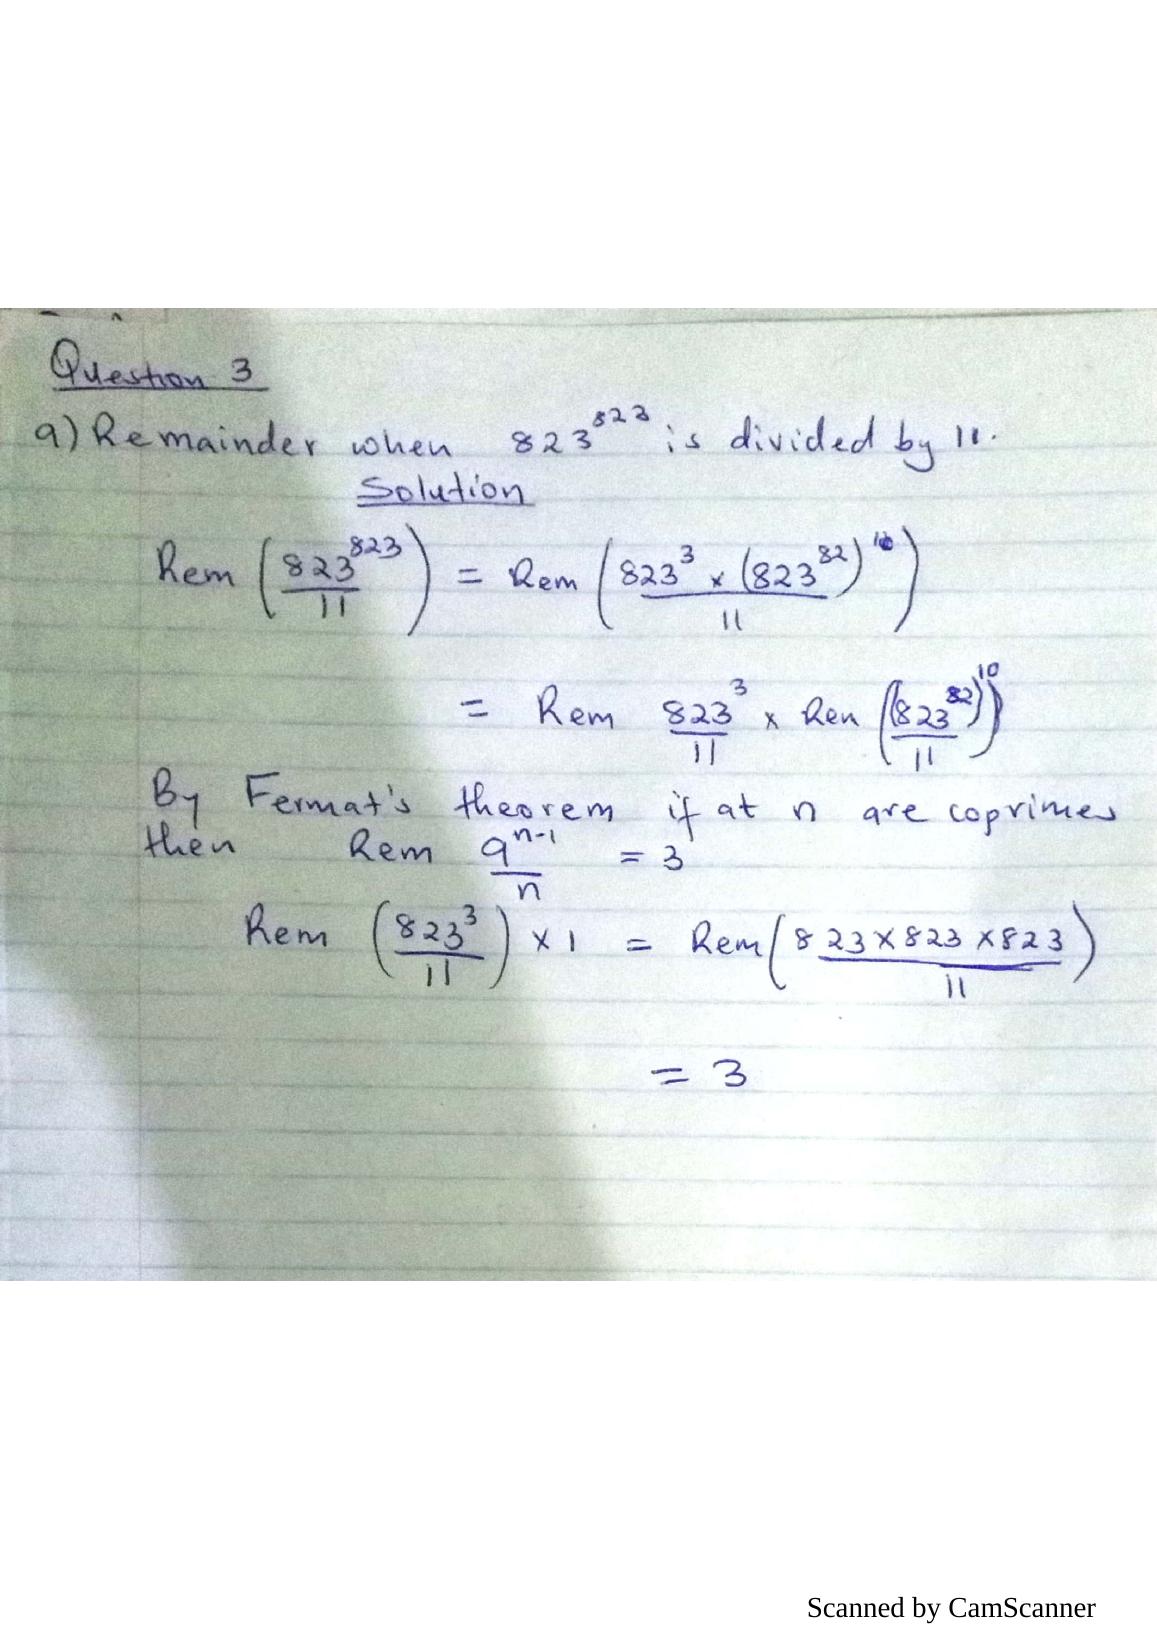 Question 3
a) Remainder when 823^823 is divided by 11.
Solution
Rem (823^823 / 11) = Rem (823^3 x (823^82)^10 / 11)
= Rem 823^3 / 11 x Ren ((823^82)^10 / 11)
By Fermat's theorem if at n are coprimes
then Rem a^n-1 / n = 3
Rem (823^3 / 11) x 1 = Rem (823 x 823 x 823 / 11)
= 3
Scanned by CamScanner